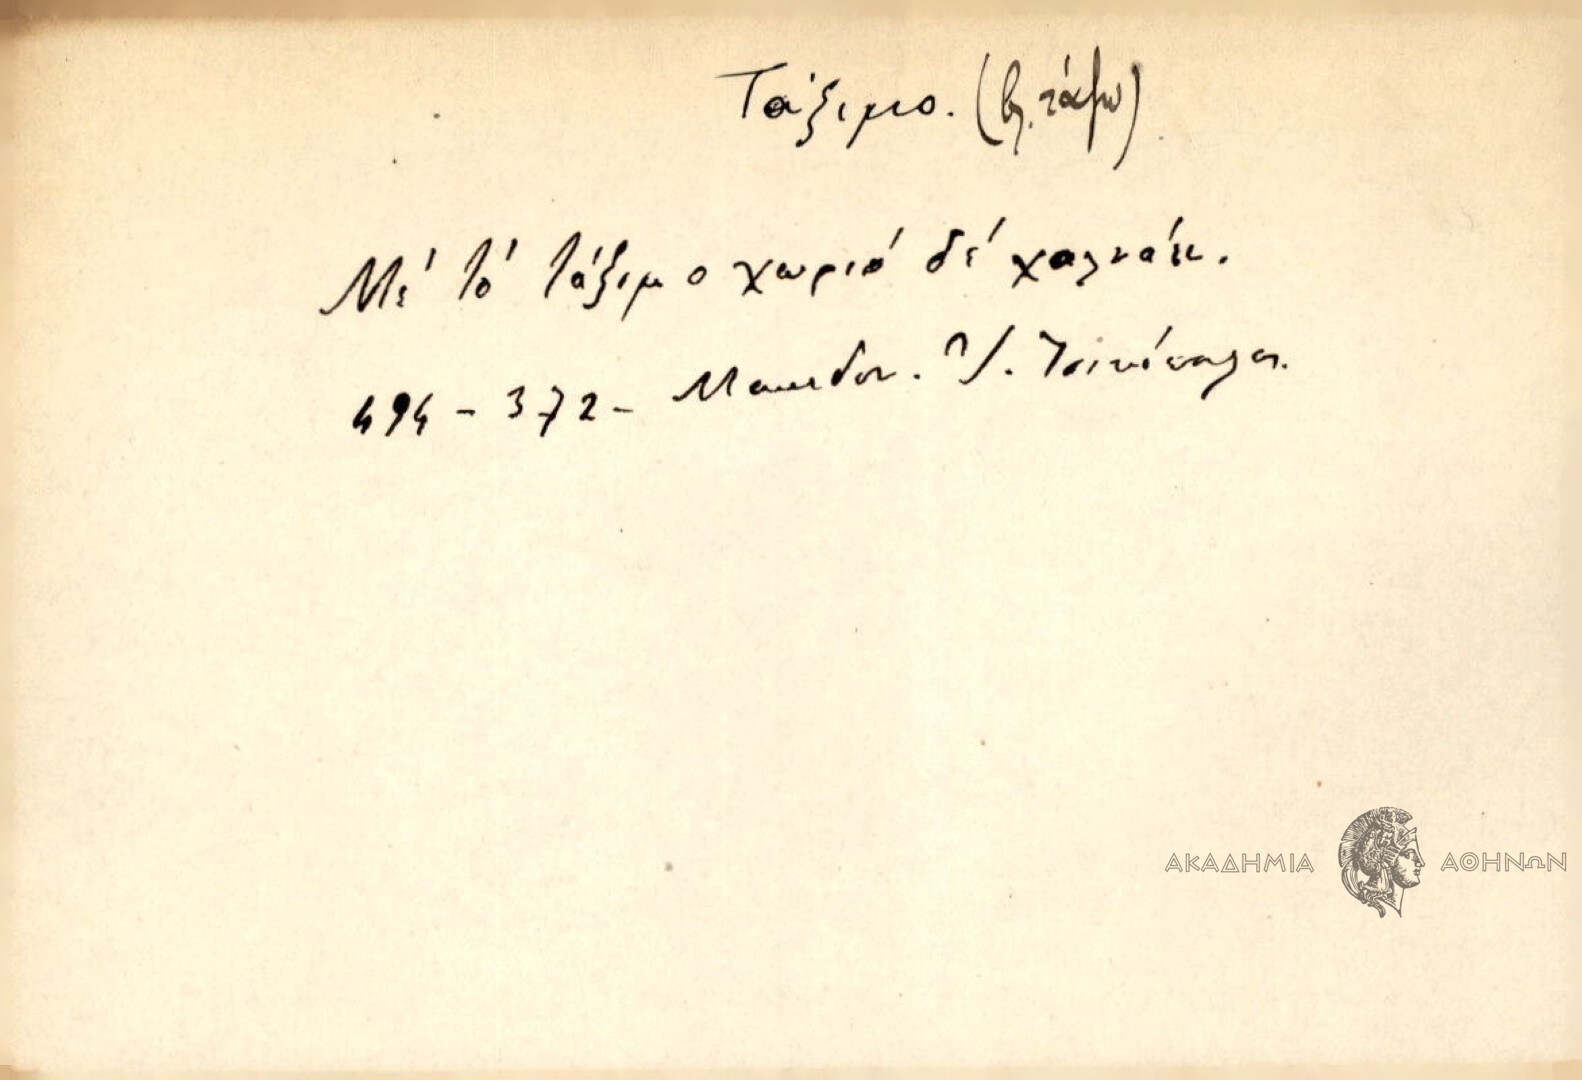 Τάξιμο. (βλ. τάζω)
Μέ τό τάξιμο χωριό δέ χαλνάει.
494 - 372 - Μακεδον.
ΑΚΑΔΗΜΙΑ ΑΘΗΝΩΝ